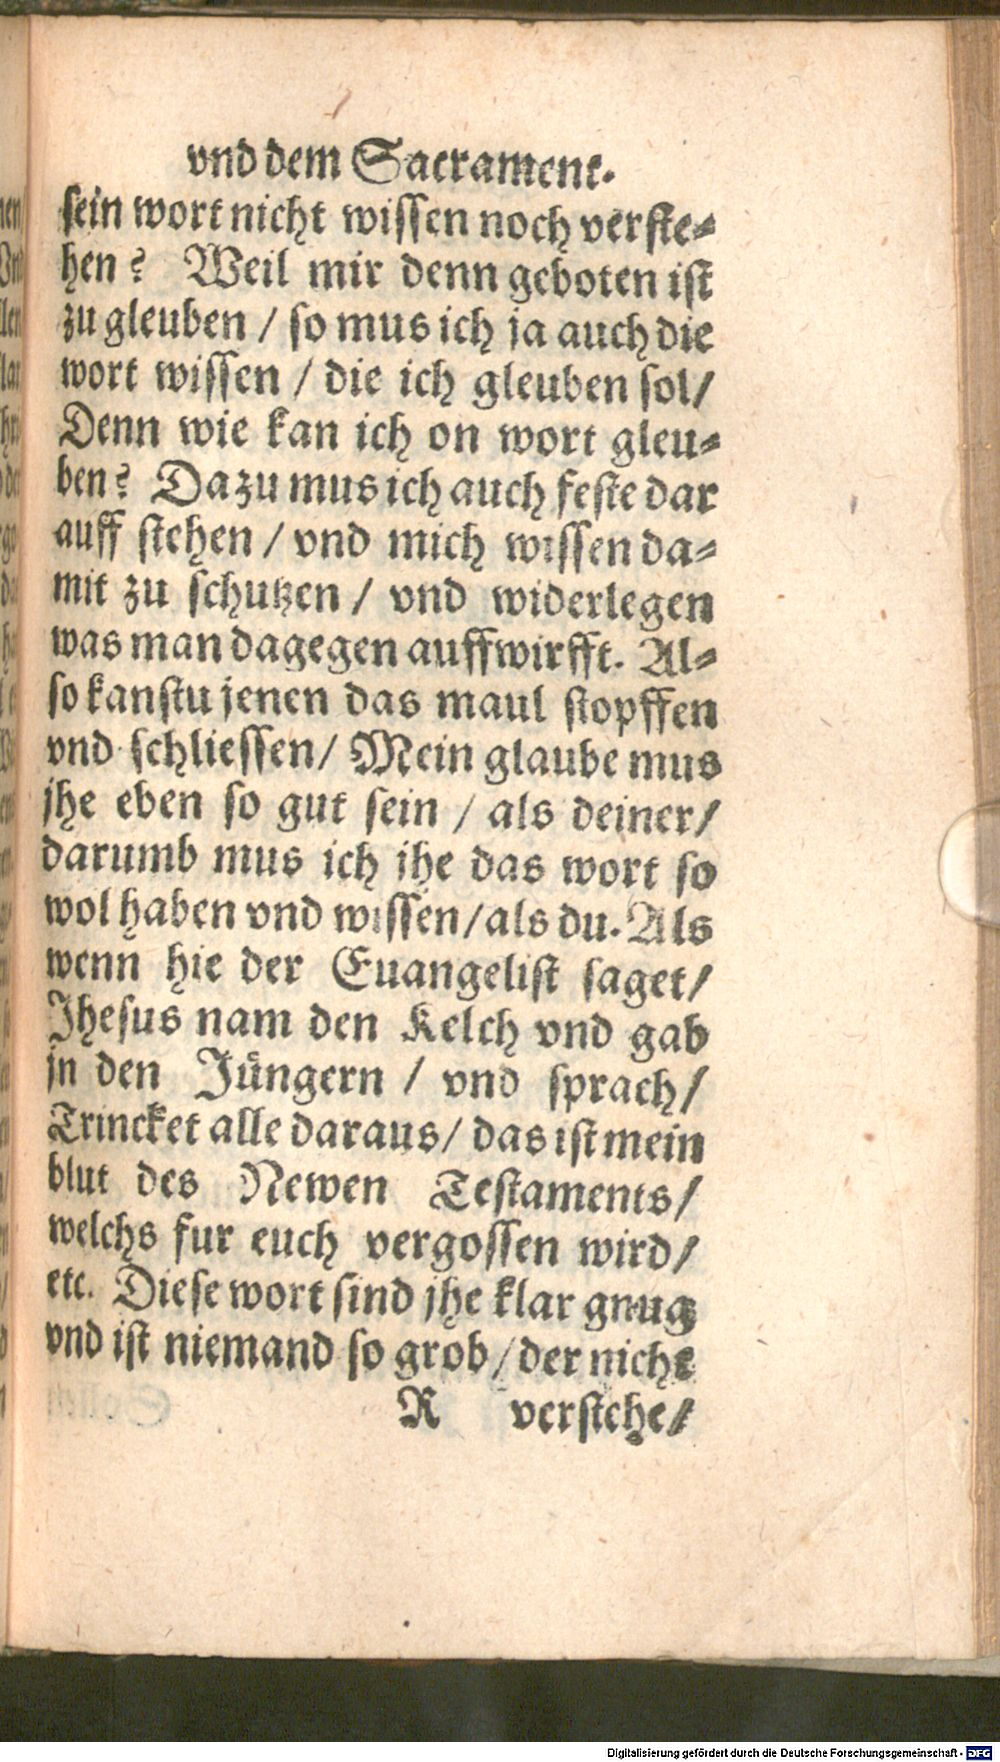 vnd dem Sacrament.
sein wort nicht wissen noch verste⸗
hen? Weil mir denn geboten ist
zu gleuben / so mus ich ja auch die
wort wissen / die ich gleuben sol/
Denn wie kan ich on wort gleu⸗
ben? Dazu mus ich auch feste dar
auff stehen / vnd mich wissen da⸗
mit zu schutzen / vnd widerlegen
was man dagegen auffwirfft. Al⸗
so kanstu jenen das maul stopffen
vnd schliessen/ Mein glaube mus
jhe eben so gut sein / als deiner/
darumb mus ich jhe das wort so
wol haben vnd wissen/als du. Als
wenn hie der Euangelist saget/
Jhesus nam den Kelch vnd gab
jn den Jüngern / vnd sprach/
Trincket alle daraus/ das ist mein
blut des Newen Testaments/
welchs fur euch vergossen wird/
etc. Diese wort sind jhe klar gnug
vnd ist niemand so grob/der nicht
R verstehe/
Digitalisierung gefördert durch die Deutsche Forschungsgemeinschaft - DFG